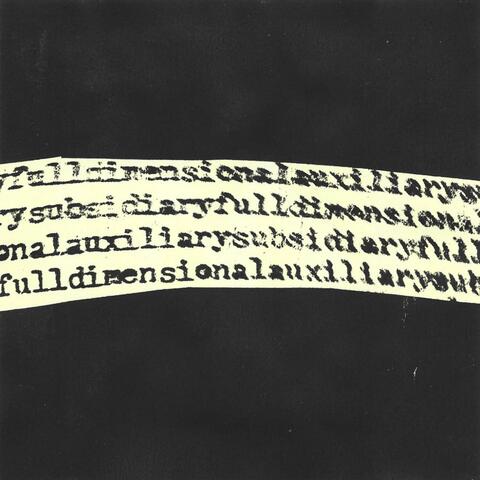 yfulldimensionalauxiliarysu
rysubsidiaryfulldimensional
onalauxiliarysubsidiaryfull
fulldimensionalauxiliarysub